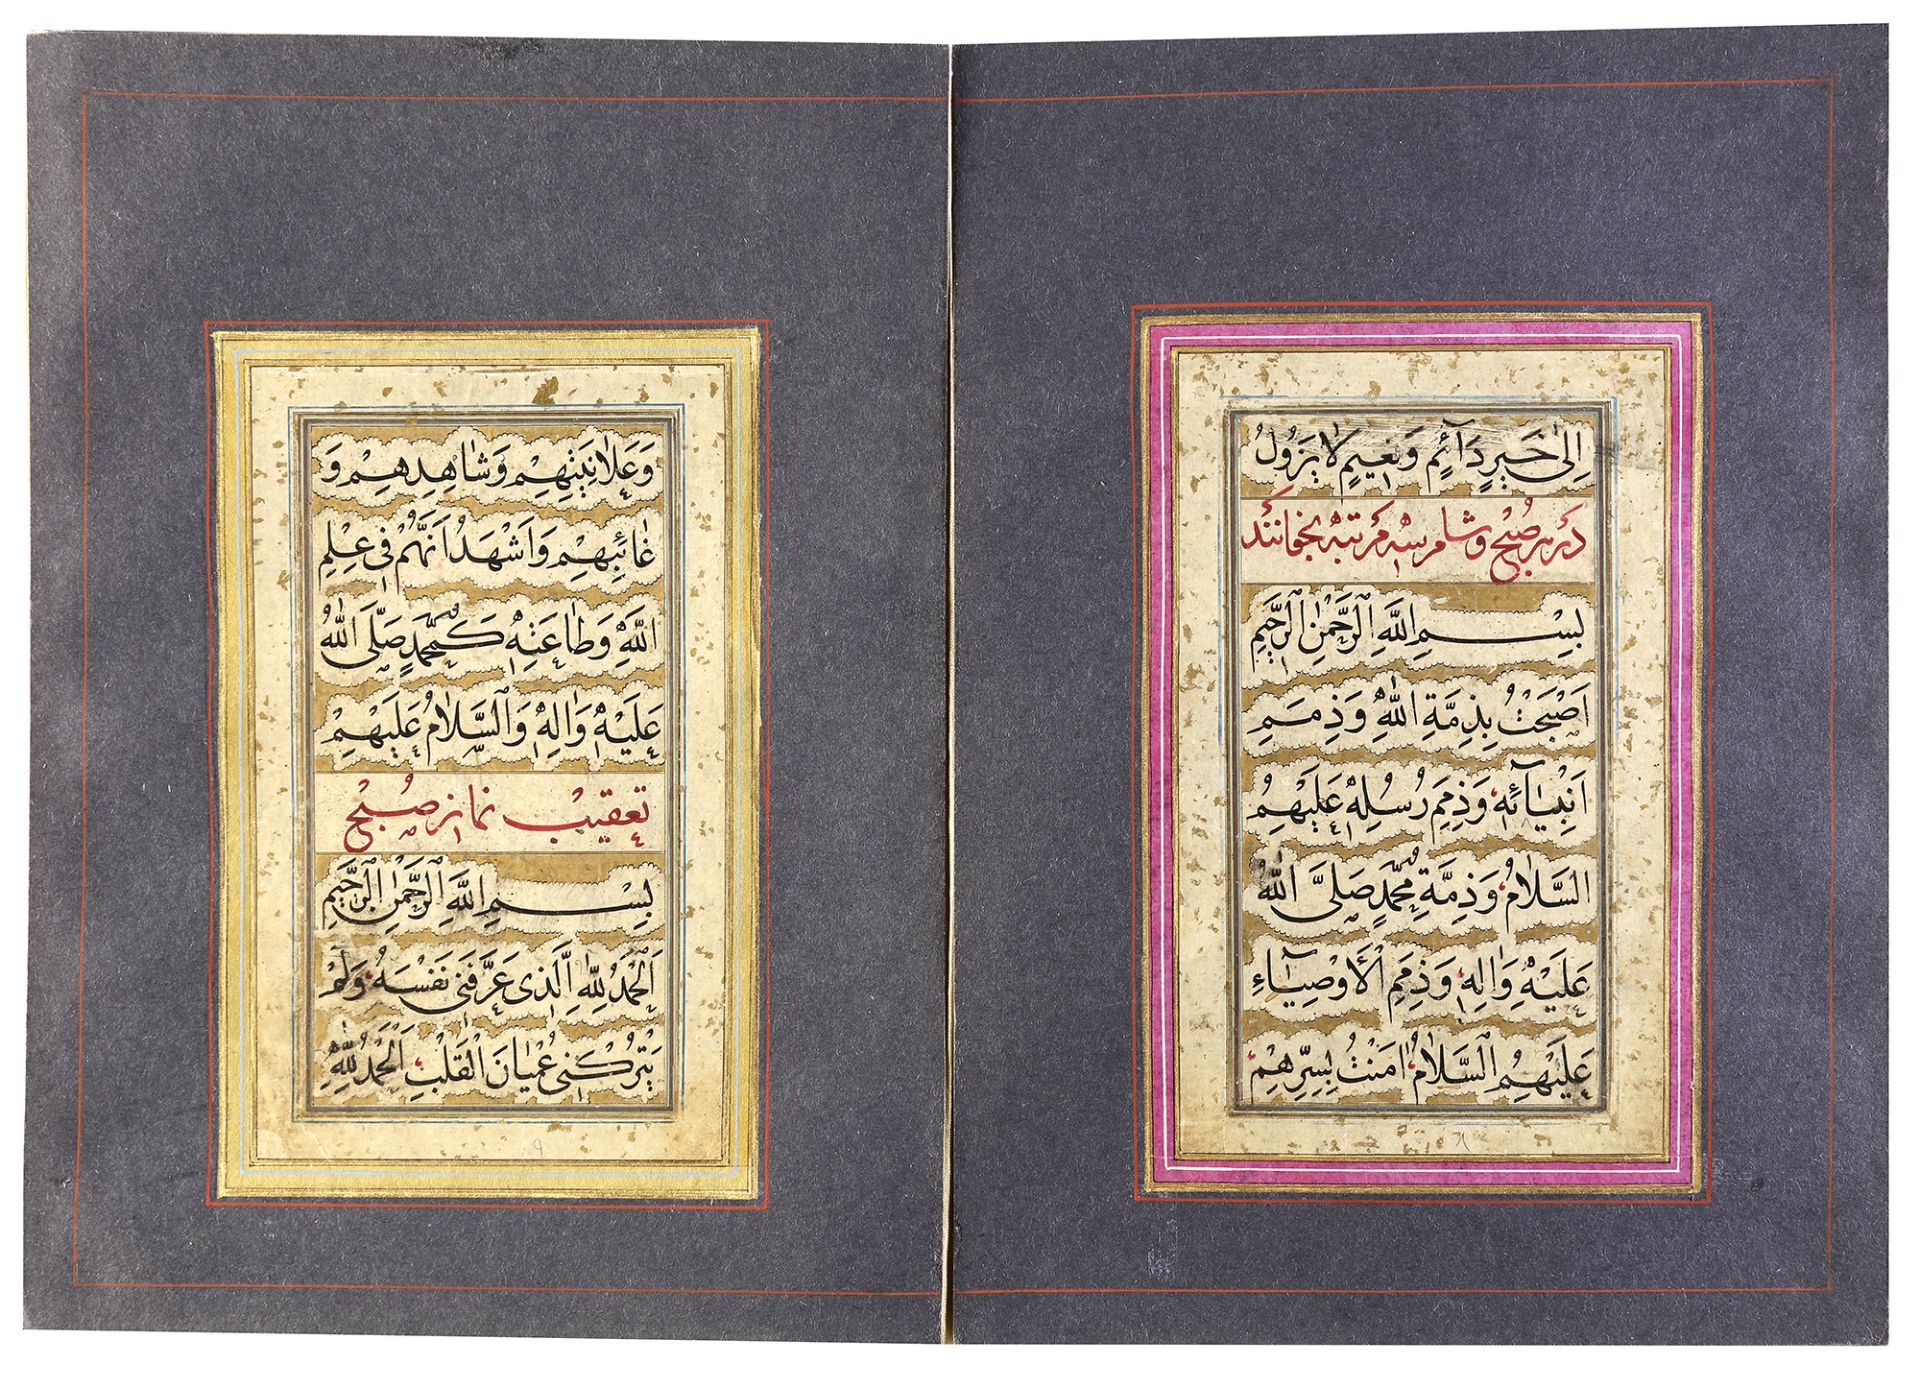 اِلىٰ خَيرٍ دَآئِمٍ وَنَعيمٍ لايَزُولُ
دَر هر صُبح وشام سه مَرتبه بخوانند
بِسْمِ اللهِ الرَّحْمٰنِ الرَّحيمِ
اَصْبَحْتُ بِذِمَّةِ اللهِ وَذِمَمِ
اَنْبِيٰآئِهِ وَذِمَمِ رُسُلِهِ عَلَيْهِمُ
السَّلامُ وَذِمَّةِ مُحَمَّدٍ صَلَّى اللهُ
عَلَيْهِ وَالِهِ وَذِمَمِ الْاَوْصِيٰآءِ
عَلَيْهِمُ السَّلامُ امَنْتُ بِسِرِّهِمْ
وَعَلانِيَتِهِمْ وَشاهِدِهِمْ وَ
غائِبِهِمْ وَاَشْهَدُ اَنَّهُمْ فى عِلْمِ
اللهِ وَطاعَتِهِ كَمُحَمَّدٍ صَلَّى اللهُ
عَلَيْهِ وَالِهِ وَالسَّلامُ عَلَيْهِمْ
تعقيب نماز صُبح
بِسْمِ اللهِ الرَّحْمٰنِ الرَّحيمِ
اَلْحَمْدُ لِلّٰهِ الَّذى عَرَّفَنى نَفْسَهُ وَلَمْ
يَتْرُكْنى عُمْيٰانَ الْقَلْبِ اَلْحَمْدُ لِلّٰهِ
٨
٩